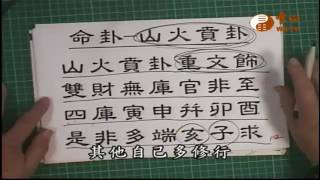 命卦—山火賁卦
山火賁卦重文飾
雙財無庫官非至
四庫寅申幷卯酉
是非多端亥子求
其他自己多修行